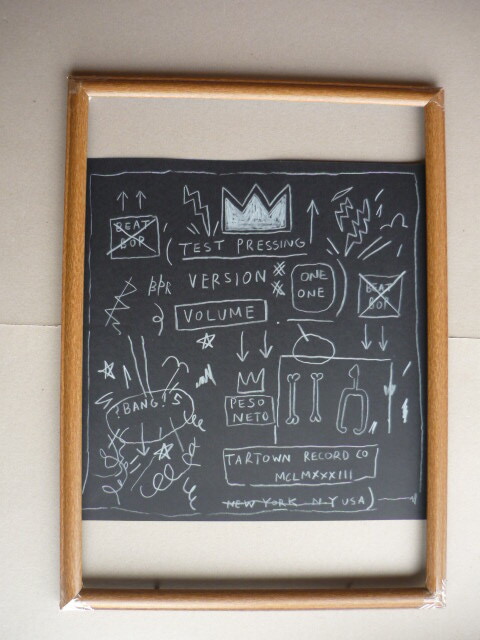 BEAT
BOP
(TEST PRESSING
VERSION
ONE
ONE)
BEAT
BOP
VOLUME
!BANG!
PESO
NETO
TARTOWN RECORD CO
MCLMXXXIII
NEW YORK N.Y USA)